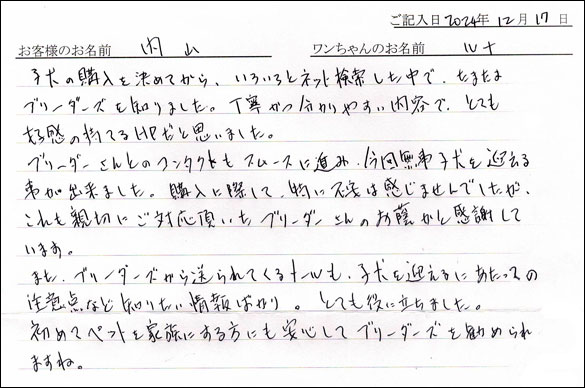 ご記入日 2024年 12月 17日
お客様のお名前 内山 ワンちゃんのお名前 ルナ
子犬の購入を決めてから、いろいろとネット検索した中で、たまたま
ブリーダーズを知りました。丁寧かつ分かりやすい内容で、とても
好感の持てるHPだと思いました。
ブリーダーさんとのコンタクトもスムースに進み、今回無事子犬を迎える
事が出来ました。購入に際して、特に不安は感じませんでしたが、
これも親切にご対応頂いたブリーダーさんのお蔭かと感謝して
います。
また、ブリーダーズから送られてくるメールも、子犬を迎えるにあたっての
注意点など知りたい情報ばかり。とても役に立ちました。
初めてペットを家族にする方にも安心してブリーダーズを勧められ
ますね。